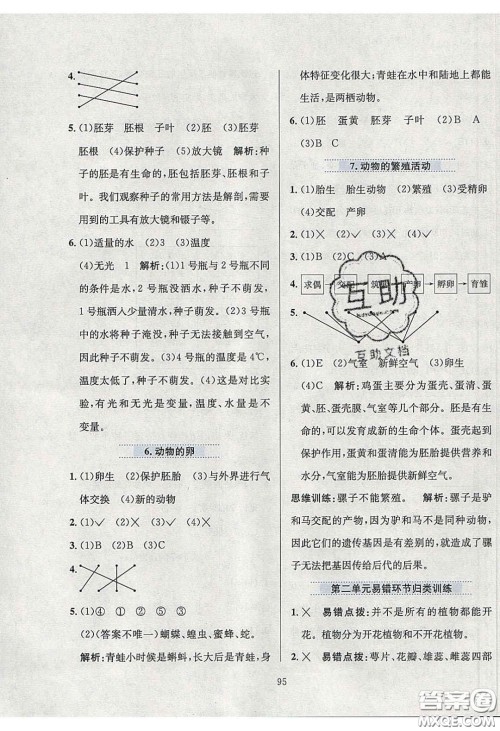 4.
5. (1)胚芽 胚根 子叶 (2)胚 (3)胚芽
胚根 (4)保护种子 (5)放大镜 解析:种
子的胚是有生命的,胚包括胚芽、胚根和子
叶。我们观察种子的常用方法是解剖,需要
用到的工具有放大镜和镊子等。
6. (1)适量的水 (2)3 (3)温度
(4)无光 1 解析:(1)1号瓶与2号瓶不同
的条件是水,种子在水中才能萌发,但1号
瓶洒入少量清水,种子萌发。(2)3号瓶
中的水将种子淹没,种子无法接触到空气,
种子不萌发。(3)4号瓶的温度是4℃,温度
太低了,种子不萌发。(4)这是对比实
验,有光和无光是变量,温度、水量不是
变量。
6.动物的卵
1. (1)卵生 (2)保护胚胎 (3)与外界进行气
体交换 (4)新的动物
2. (1)✓ (2)✓ (3)✓ (4)✕
3. (1)B (2)B (3)C
4.
5. (1)④ ① ⑤ ③
(2)(答案不唯一)蝴蝶、蝗虫、蜜蜂、蛇。
解析:青蛙小时候是蝌蚪,长大后是青蛙,身
体特征变化很大;青蛙在水中和陆地上都能
生活,是两栖动物。
6. (1)胚 蛋黄 气室 子叶 (2)B A
(3)B C
7.动物的繁殖活动
1. (1)胎生 胎生动物 (2)繁殖 (3)受精卵
(4)交配 产卵
2. (1)✕ (2)✓ (3)✓ (4)✕
3. (1)B (2)C (3)A
4. 求偶 交配 筑巢 产卵 孵卵 育雏
5.
互助
互助文档
6. (1)E (2)气室 新鲜空气 (3)卵生
(4)C 解析:鸡蛋主要分为蛋壳、蛋壳
膜、胚、蛋壳膜、气室等几个部分。胚会发育
出新的生命个体。蛋壳和蛋壳膜起到支撑和
保护作用,蛋黄和蛋清能为胚胎提供营养物
质,气室能为胚胎提供新鲜空气。
思维训练:骡子不能繁殖。 解析:骡子是驴
和马交配的产物,因为驴和马不是同种动物,
因此它们的遗传基因是有变异的,造成了骡
子无法遗传给后代的后果。
第二单元易错环节归类训练
1. ✕ 易错点拨:并不是所有的植物都能开
花。植物分为开花植物和不开花植物。
2. ✕ 易错点拨:萼片、花瓣、雄蕊、雌蕊四部
95
答案圈
MXQE.COM